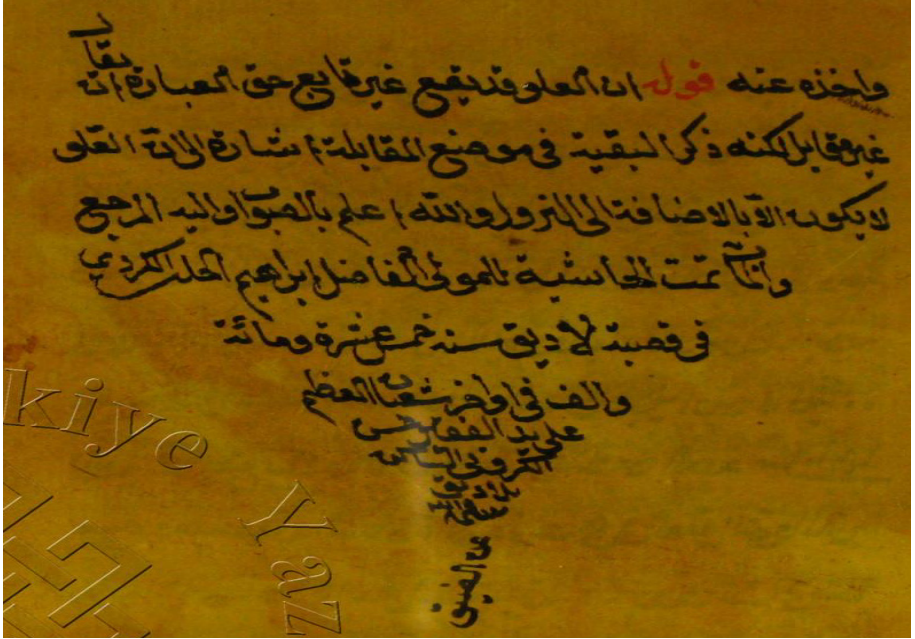 واخذه عنه قوله ان العلو قد يقع غير قايع حق العبارة ان يقا
غير مقابل لكنه ذكر البقية في موضع المقابلة اشارة الى ان العلو
لا يكون الا بالاضافة الى النزول والله اعلم بالصواب واليه المرجع
والمآب تمت الحاشية للمولى الفاضل ابراهيم الحلبى الكردى
في قصبة لاديق سنه خمس عشرة ومائة
والف في اواخر شعبان المعظم
على يد الفقير حسن
عن الضيق
kiye
Yaz